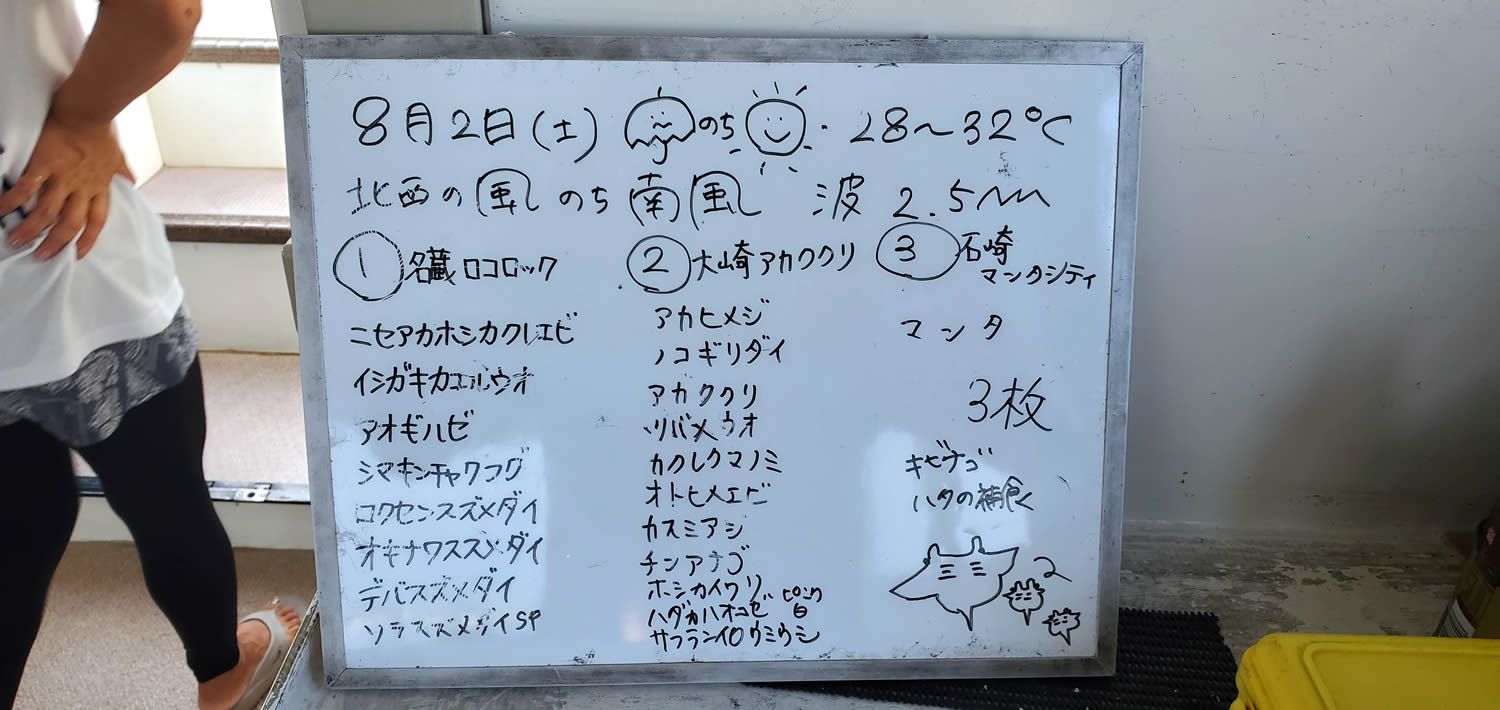 8月2日(土) のち 28~32℃
北西の風のち南風 波2.5m
① 名蔵ロコロック
ニセアカホシカクレエビ
イシガキカエルウオ
アオギハゼ
シマキンチャクフグ
ロクセンスズメダイ
オキナワスズメダイ
デバスズメダイ
ソラスズメダイSP
② 大崎アカククリ
アカヒメジ
ノコギリダイ
アカククリ
ツバメウオ
カクレクマノミ
オトヒメエビ
カスミアジ
チンアナゴ
ホシカイワリ
ハダカハオコゼ ピンク 白
サフランイロウミウシ
③ 石崎
マンタシティ
マンタ
3枚
キビナゴ
ハタの補食